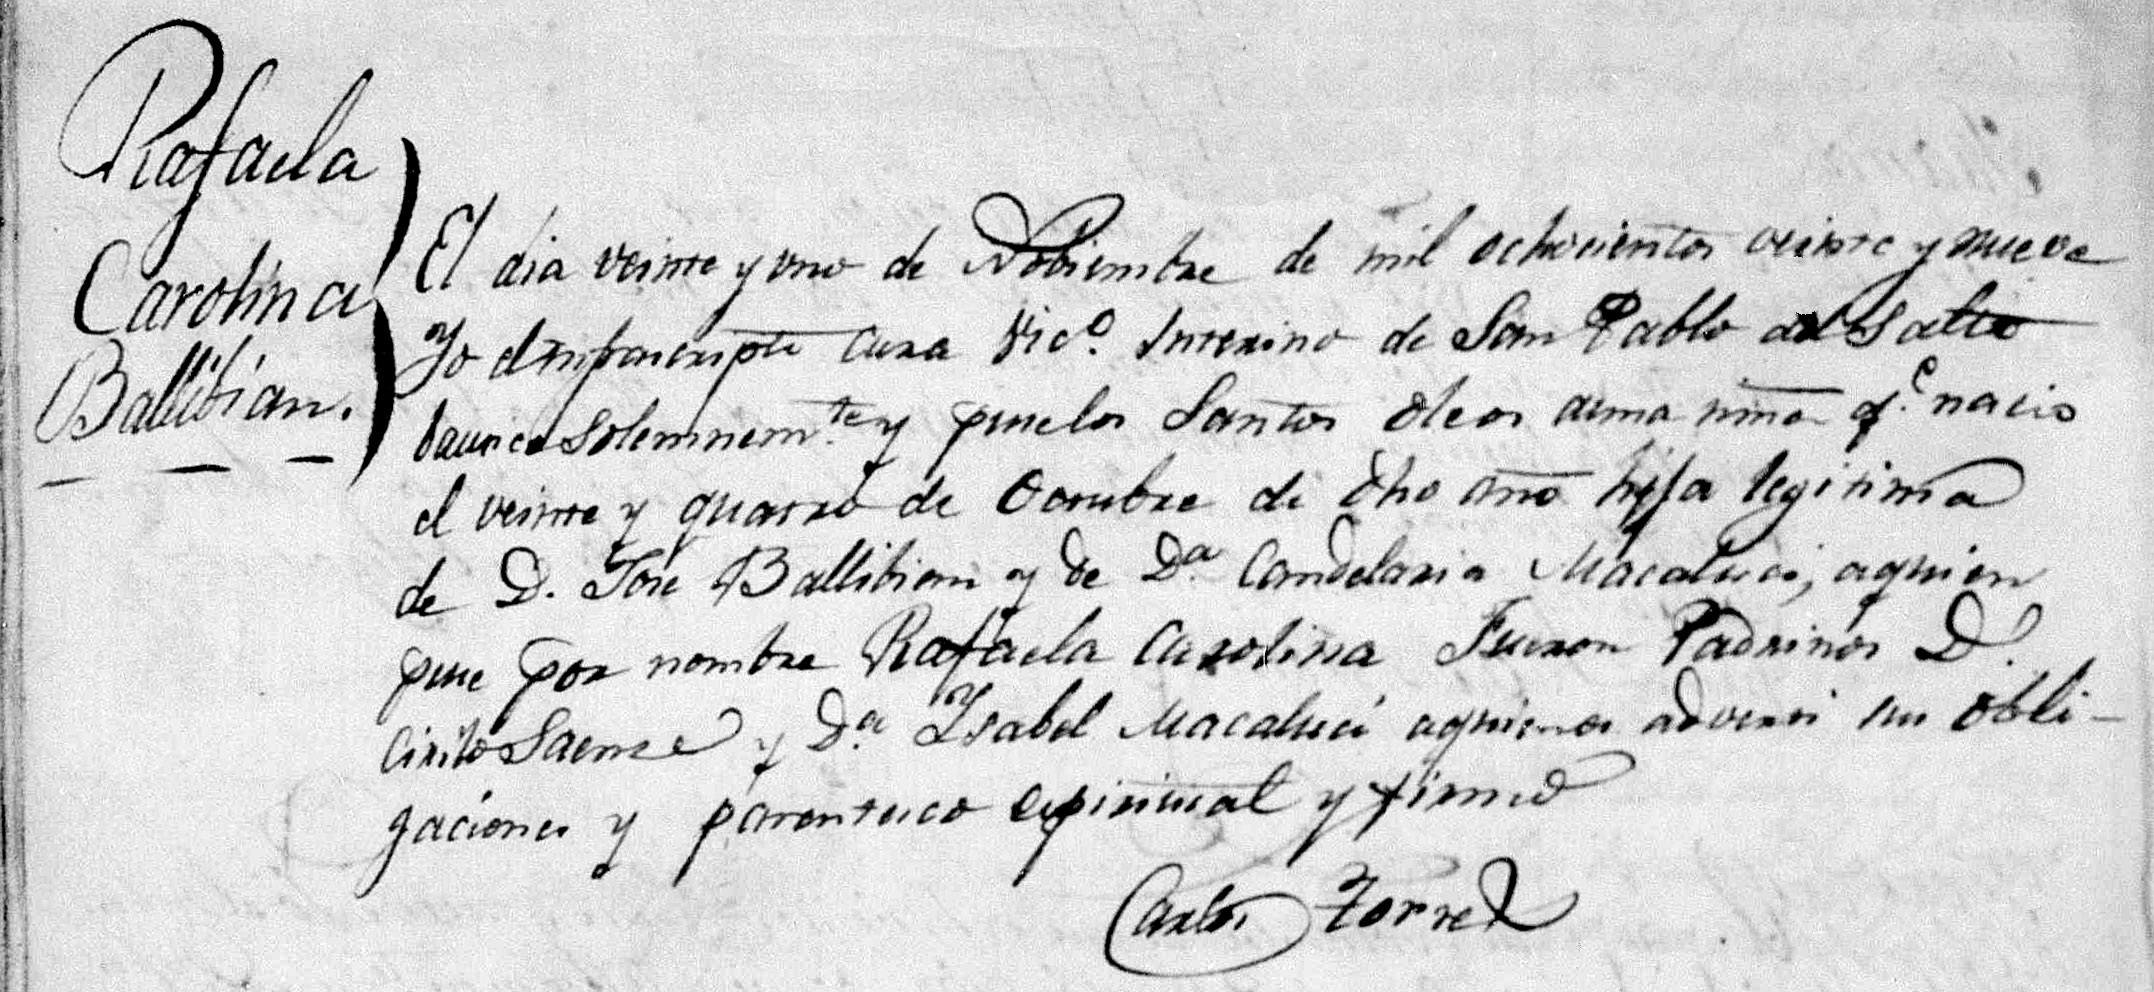 Rafaela
Carolina
Ballibian.
El dia veinte y uno de Nobiembre de mil ochocientos veinte y nueve
Yo el infrascripto Cura Vic.º Interino de San Pablo del Salto
bautice solemnem.te y puse los Santos Oleos auna niña q.e nacio
el veinte y quatro de Octubre de dho año hija legitima
de D. Jose Ballibian y de D.a Candelaria Macaluci, aquien
puse por nombre Rafaela Carolina Fueron Padrinos D.
Cirilo Saenz y D.a Ysabel Macaluci aquienes adverti sus obli-
gaciones y parentesco espiritual y firmo
Carlos Torres